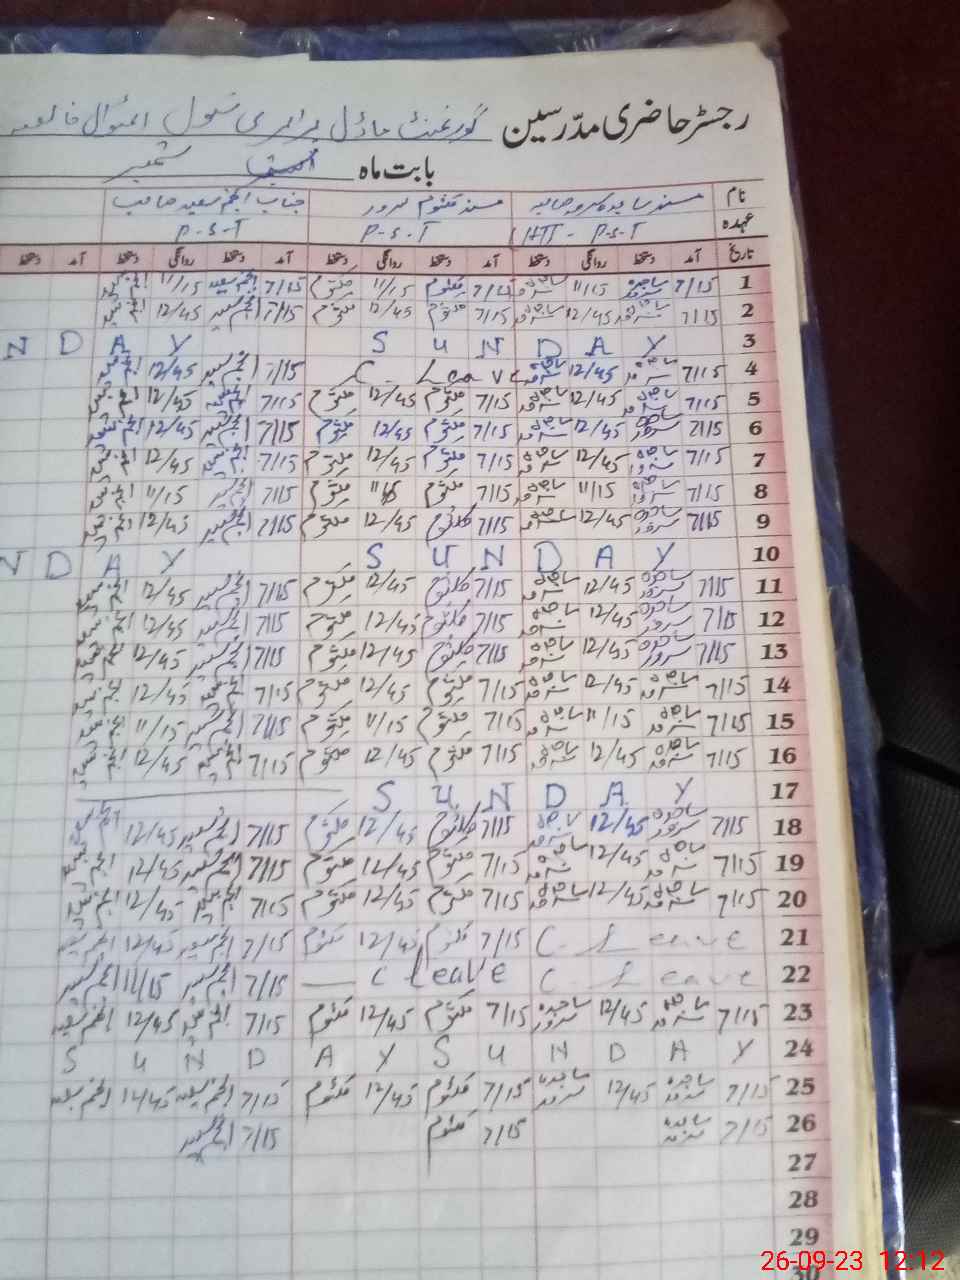 رجسٹر حاضری مدّرسین گورنمنٹ ماڈل پرائمری سکول
بابت ماہ ستمبر
نام مسز ساجدہ سرور صاحبہ مسز کلثوم سرور جناب انجم سعید صاحب
عہدہ HTT - P-S-T P-S-T P-S-T
تاریخ آمد دستخط روانگی دستخط آمد دستخط روانگی دستخط آمد دستخط روانگی دستخط آمد دستخط
1 7/15 ساجدہ سرور 11/15 ساجدہ سرور 7/15 کلثوم 11/15 کلثوم 7/15 انجم سعید 11/15 انجم سعید
2 7/15 ساجدہ سرور 12/45 ساجدہ سرور 7/15 کلثوم 12/45 کلثوم 7/15 انجم سعید 12/45 انجم سعید
3 S U N D A Y N D A Y
4 7/15 ساجدہ سرور 12/45 ساجدہ سرور C. Leave 7/15 انجم سعید 12/45 انجم سعید
5 7/15 ساجدہ سرور 12/45 ساجدہ سرور 7/15 کلثوم 12/45 کلثوم 7/15 انجم سعید 12/45 انجم سعید
6 7/15 ساجدہ سرور 12/45 ساجدہ سرور 7/15 کلثوم 12/45 کلثوم 7/15 انجم سعید 12/45 انجم سعید
7 7/15 ساجدہ سرور 12/45 ساجدہ سرور 7/15 کلثوم 12/45 کلثوم 7/15 انجم سعید 12/45 انجم سعید
8 7/15 ساجدہ سرور 11/15 ساجدہ سرور 7/15 کلثوم 11/15 کلثوم 7/15 انجم سعید 11/15 انجم سعید
9 7/15 ساجدہ سرور 12/45 ساجدہ سرور 7/15 کلثوم 12/45 کلثوم 7/15 انجم سعید 12/45 انجم سعید
10 S U N D A Y N D A Y
11 7/15 ساجدہ سرور 12/45 ساجدہ سرور 7/15 کلثوم 12/45 کلثوم 7/15 انجم سعید 12/45 انجم سعید
12 7/15 ساجدہ سرور 12/45 ساجدہ سرور 7/15 کلثوم 12/45 کلثوم 7/15 انجم سعید 12/45 انجم سعید
13 7/15 ساجدہ سرور 12/45 ساجدہ سرور 7/15 کلثوم 12/45 کلثوم 7/15 انجم سعید 12/45 انجم سعید
14 7/15 ساجدہ سرور 12/45 ساجدہ سرور 7/15 کلثوم 12/45 کلثوم 7/15 انجم سعید 12/45 انجم سعید
15 7/15 ساجدہ سرور 11/15 ساجدہ سرور 7/15 کلثوم 11/15 کلثوم 7/15 انجم سعید 11/15 انجم سعید
16 7/15 ساجدہ سرور 12/45 ساجدہ سرور 7/15 کلثوم 12/45 کلثوم 7/15 انجم سعید 12/45 انجم سعید
17 S U N D A Y
18 7/15 ساجدہ سرور 12/45 ساجدہ سرور 7/15 کلثوم 12/45 کلثوم 7/15 انجم سعید 12/45 انجم سعید
19 7/15 ساجدہ سرور 12/45 ساجدہ سرور 7/15 کلثوم 12/45 کلثوم 7/15 انجم سعید 12/45 انجم سعید
20 7/15 ساجدہ سرور 12/45 ساجدہ سرور 7/15 کلثوم 12/45 کلثوم 7/15 انجم سعید 12/45 انجم سعید
21 C. Leave 7/15 کلثوم 12/45 کلثوم 7/15 انجم سعید 12/45 انجم سعید
22 C. Leave C Leave 7/15 انجم سعید 11/15 انجم سعید
23 7/15 ساجدہ سرور 12/45 ساجدہ سرور 7/15 کلثوم 12/45 کلثوم 7/15 انجم سعید 12/45 انجم سعید
24 S U N D A Y S U N D A Y
25 7/15 ساجدہ سرور 12/45 ساجدہ سرور 7/15 کلثوم 12/45 کلثوم 7/15 انجم سعید 12/45 انجم سعید
26 7/15 ساجدہ سرور 7/15 کلثوم 7/15 انجم سعید
27
28
29
30
26-09-23 12:12